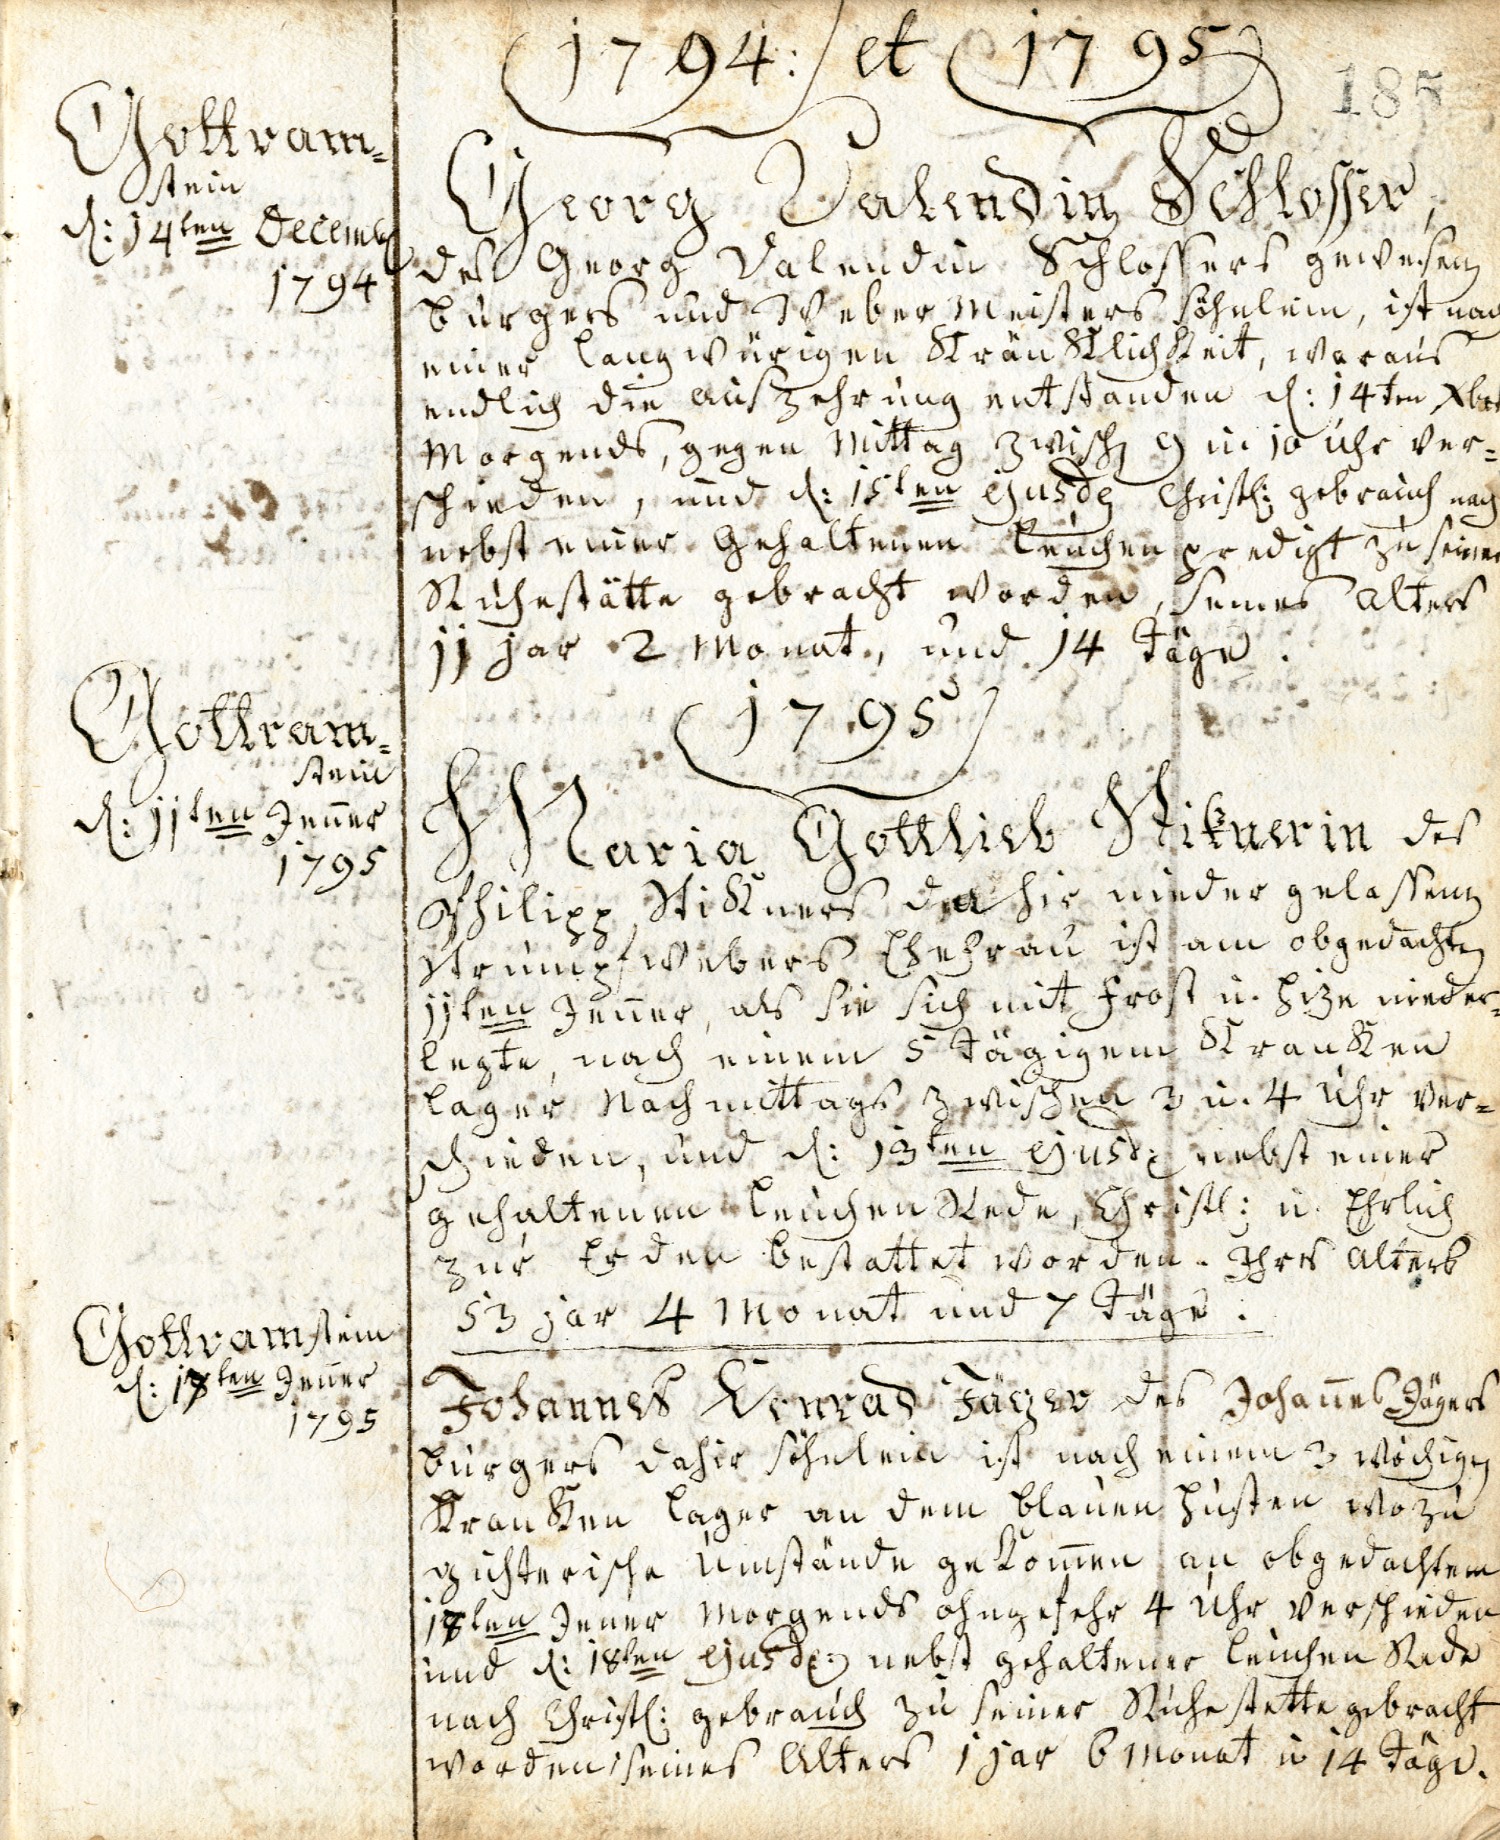 1794: et 1795
185
Gottram=
stein
d: 14ten Decemb
1794
Georg Valendin Schlosser,
des Georg Valendin Schlossers gewesenen
bürgers und Weber Meisters söhnlein, ist nach
einer langwürigen Kränklichkeit, woraus
endlich die auszehrung entstanden d: 14ten Xber
Morgends, gegen Mittag zwisch 9 u. 10 Uhr ver=
schieden, und d: 15ten ejusd Christl: gebrauch nach
nebst einer gehaltenen leichen predigt zu seiner
Ruhestätte gebracht worden, seines alters
11 jar 2 Monat, und 14 Täge.
1795
Gottram=
stein
d: 11ten Jenner
1795
Maria Gottlieb Stiknerin des
Philipp Stikners dahir nieder gelassenen
Strumpfwebers Ehefrau ist am obgedachten
11ten Jenner, als sie sich mit Frost u. hize nieder=
legte, nach einem 5 Tägigem Kranken
lager Nachmittags zwischen 3 u. 4 Uhr ver=
schieden, und d: 13ten ejusd: nebst einer
gehaltenen leichen Rede, Christl: u. Ehrlich
zur Erden bestattet worden. Ihres alters
53 jar 4 Monat und 7 Täge.
Gottramstein
d: 18ten Jenner
1795
Johannes Konrad Jäger des Johannes Jägers
bürgers dahir söhnlein ist nach einem 3 wöchigen
Kranken lager an dem blauen husten wozu
gichterische Umstände gekommen an obgedachtem
Jener Morgends ohngefehr 4 Uhr verschieden
und d: 18ten ejusd: nebst gehaltener leichen Rede
nach Christl: gebrauch zu seiner Ruhestette gebracht
worden, seines Alters 1 jar 6 Monat u 14 Täge.